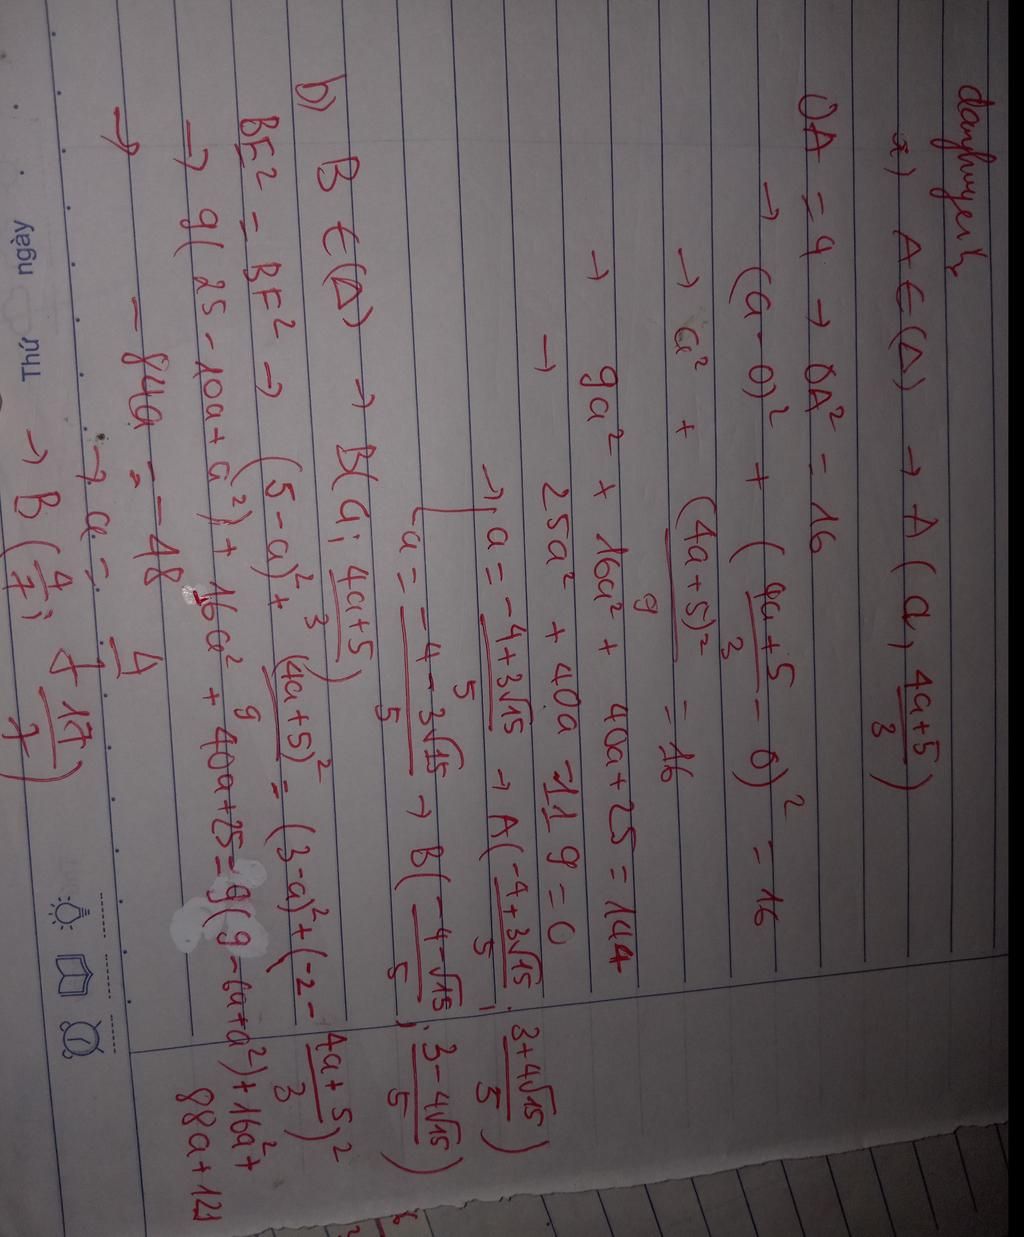 danhuyenh
a) A ∈ (Δ) → A ( a, (4a+5)/3 )
OA = 4 → OA² = 16
→ (a - 0)² + ( (4a+5)/3 - 0 )² = 16
→ a² + (4a+5)²/9 = 16
→ 9a² + 16a² + 40a + 25 = 144
→ 25a² + 40a - 119 = 0
→ a = (-4+3√15)/5 → A ( (-4+3√15)/5 ; (3+4√15)/5 )
a = (-4-3√15)/5 → B ( (-4-√15)/5 ; (3-4√15)/5 )
b) B ∈ (Δ) → B( a; (4a+5)/3 )
BE² = BF² → (5-a)² + (4a+5)²/9 = (3-a)² + (-2 - (4a+5)/3)²
→ 9( 25 - 10a + a² ) + 16a² + 40a + 25 = 9( 9 - 6a + a² ) + 16a² +
88a + 121
→ - 84a = - 48
→ a = 4/7
→ B ( 4/7 ; 17/7 )
Thứ ngày